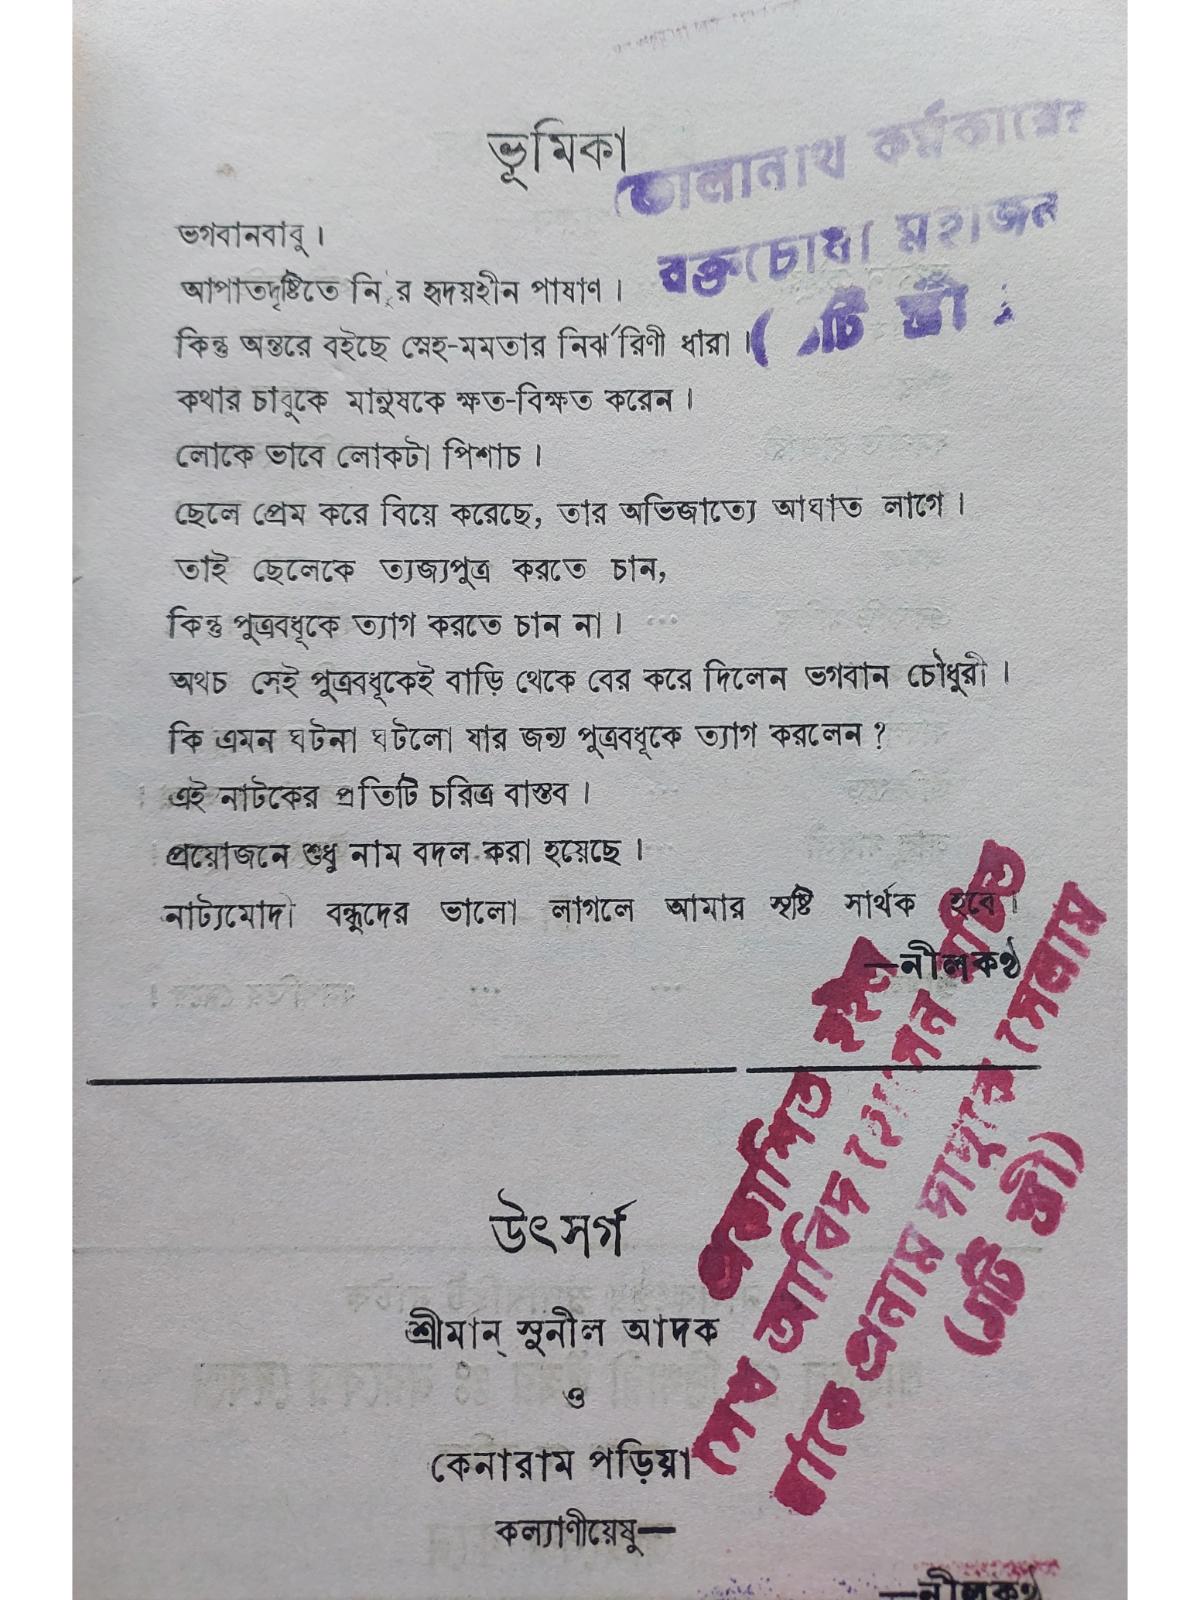 ভূমিকা
ভোলানাথ কর্মকারের
রক্তচোষা মহাজন
( টি স্ত্রী
ভগবানবাবু।
আপাতদৃষ্টিতে হৃদয়হীন পাষাণ।
কিন্তু অন্তরে বইছে স্নেহ-মমতার নির্ঝরিণী ধারা।
কথার চাবুকে মানুষকে ক্ষত-বিক্ষত করেন।
লোকে ভাবে লোকটা পিশাচ।
ছেলে প্রেম করে বিয়ে করেছে, তার অভিজাত্যে আঘাত লাগে।
তাই ছেলেকে ত্যজ্যপুত্র করতে চান,
কিন্তু পুত্রবধূকে ত্যাগ করতে চান না।
অথচ সেই পুত্রবধূকেই বাড়ি থেকে বের করে দিলেন ভগবান চৌধুরী।
কি এমন ঘটনা ঘটলো যার জন্য পুত্রবধূকে ত্যাগ করলেন?
এই নাটকের প্রতিটি চরিত্র বাস্তব।
প্রয়োজনে শুধু নাম বদল করা হয়েছে।
নাট্যমোদী বন্ধুদের ভালো লাগলে আমার সৃষ্টি সার্থক হবে।
—নীলকণ্ঠ
প্রকাশিত হইল
সেখ আবিদ হোসেন রচিত
মাকে প্রনাম দাদুরে সেলাম
(৩টি স্ত্রী)
উৎসর্গ
শ্রীমান্ সুনীল আদক
ও
কেনারাম পড়িয়া
কল্যাণীয়েষু—
—নীলকণ্ঠ